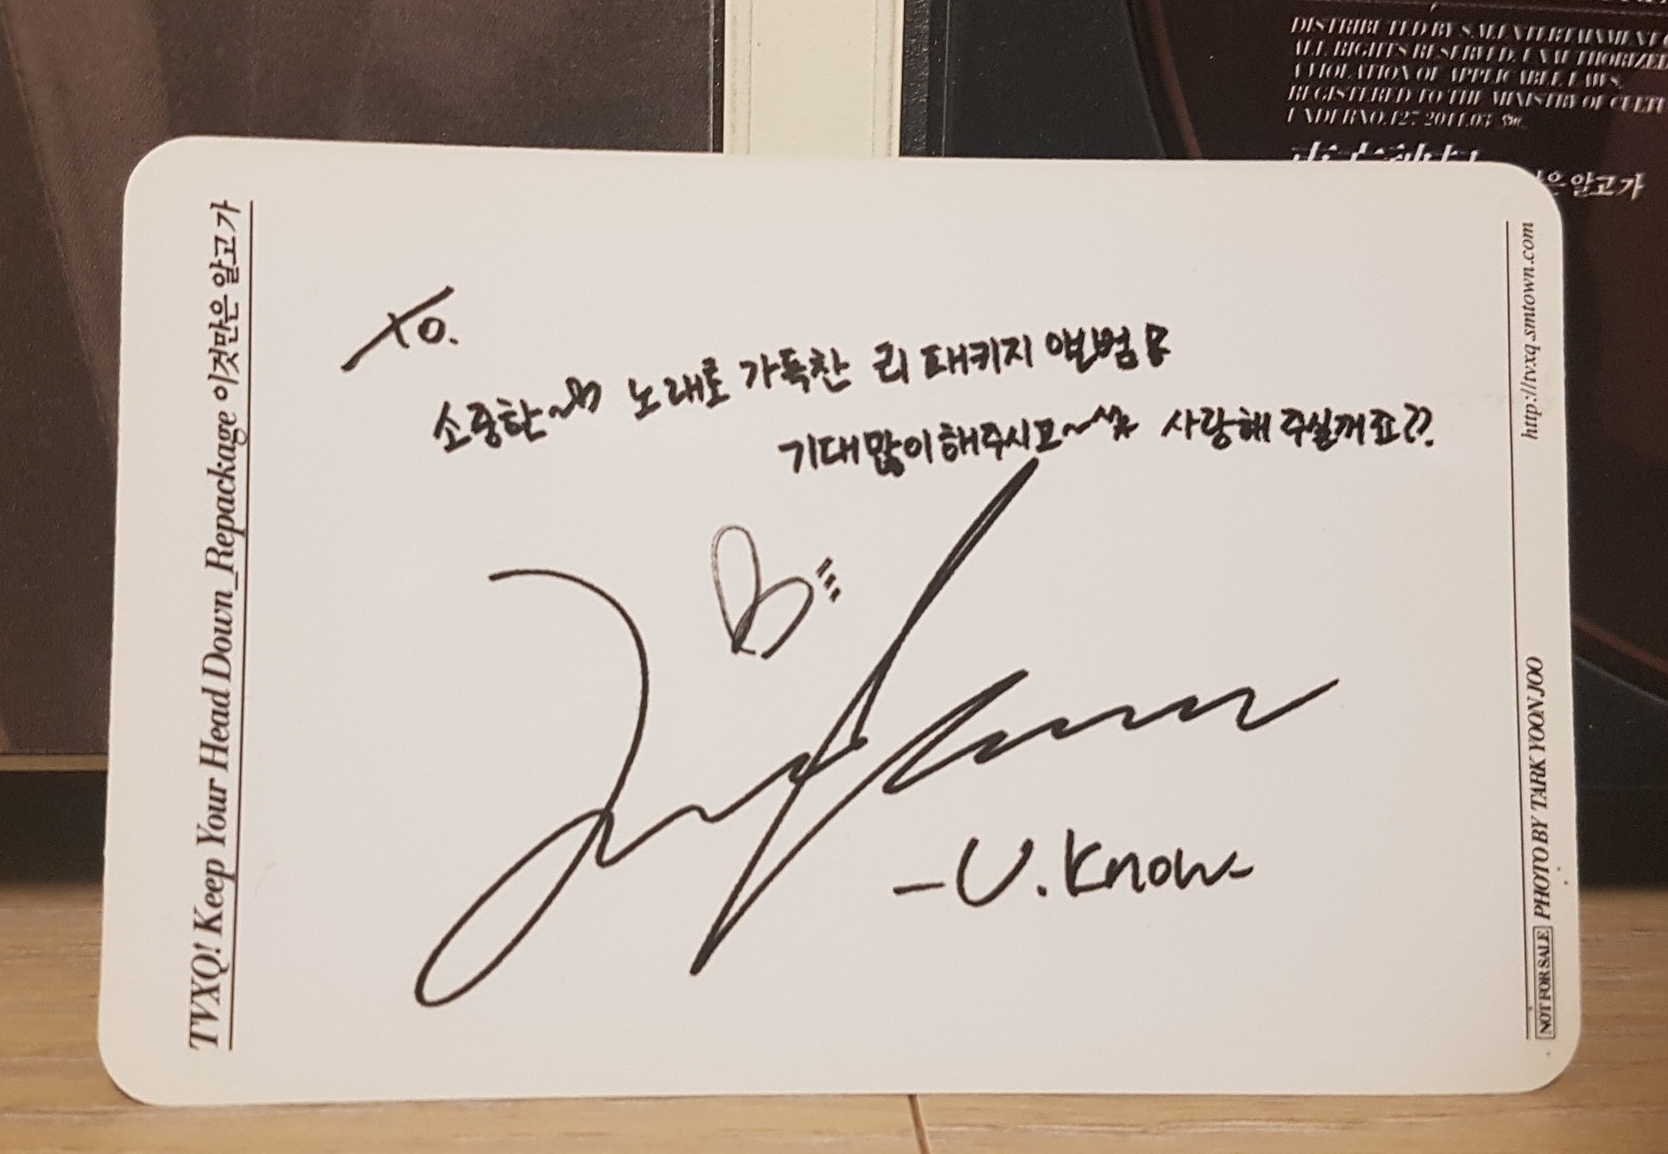 DISTRIBUTED BY S.M. ENTERTAINMENT
ALL RIGHTS RESERVED. UNAUTHORIZED
A VIOLATION OF APPLICABLE LAWS.
REGISTERED TO THE MINISTRY OF CULTU
UNDER NO.127 2011.03
은 알고 가
TVXQ! Keep Your Head Down_Repackage 이것만은 알고 가
To.
소중한~ 노래로 가득찬 리패키지 앨범
기대많이해주시고~ 사랑해 주실꺼죠??
-U.Know-
http://tvxq.smtown.com
NOT FOR SALE PHOTO BY TARK YOON JOO